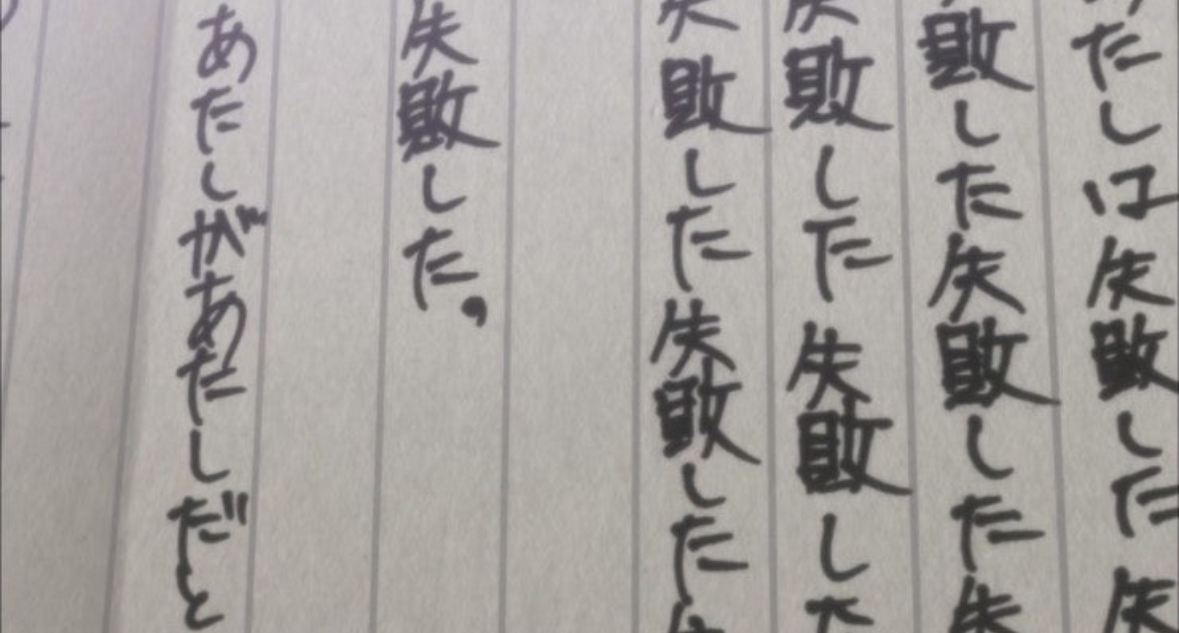 たしは失敗した失
敗した失敗した失
失敗した失敗した
失敗した失敗した
失敗した。
あたしがあたしだと